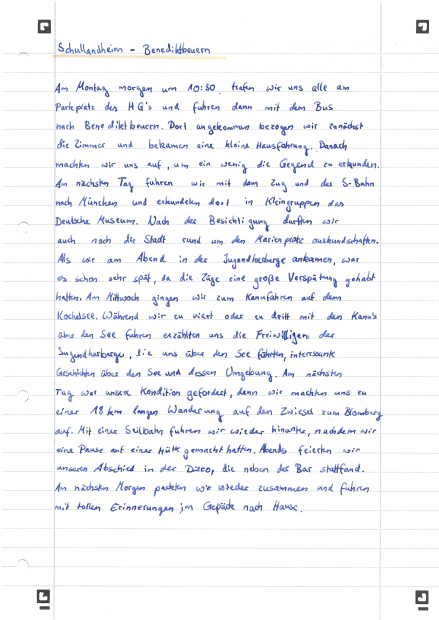 Schullandheim - Benediktbeuern
Am Montag morgen um 10:30, trafen wir uns alle am
Parkplatz des HG's und fuhren dann mit dem Bus
nach Benediktbeuern. Dort angekommen bezogen wir zunächst
die Zimmer und bekamen eine kleine Hausführung. Danach
machten wir uns auf, um ein wenig die Gegend zu erkunden.
Am nächsten Tag fuhren wir mit dem Zug und der S-Bahn
nach München und erkundeten dort in Kleingruppen das
Deutsche Museum. Nach der Besichtigung durften wir
auch noch die Stadt rund um den Marienplatz auskundschaften.
Als wir am Abend in der Jugendherberge ankamen, war
es schon sehr spät, da die Züge eine große Verspätung gehabt
hatten. Am Mittwoch gingen wir zum Kanufahren auf dem
Kochelsee. Während wir zu viert oder zu dritt mit den Kanu's
über den See fuhren erzählten uns die Freiwilligen der
Jugendherberge, die uns über den See führten, interessante
Geschichten über den See und dessen Umgebung. Am nächsten
Tag war unsere Kondition gefordert, denn wir machten uns zu
einer 18 km langen Wanderung auf den Zwiesel zum Blomberg
auf. Mit einer Seilbahn fuhren wir wieder hinunter, nachdem wir
eine Pause auf einer Hütte gemacht hatten. Abends feierten wir
unseren Abschied in der Disco, die neben der Bar stattfand.
Am nächsten Morgen packten wir wieder zusammen und fuhren
mit tollen Erinnerungen im Gepäck nach Hause.